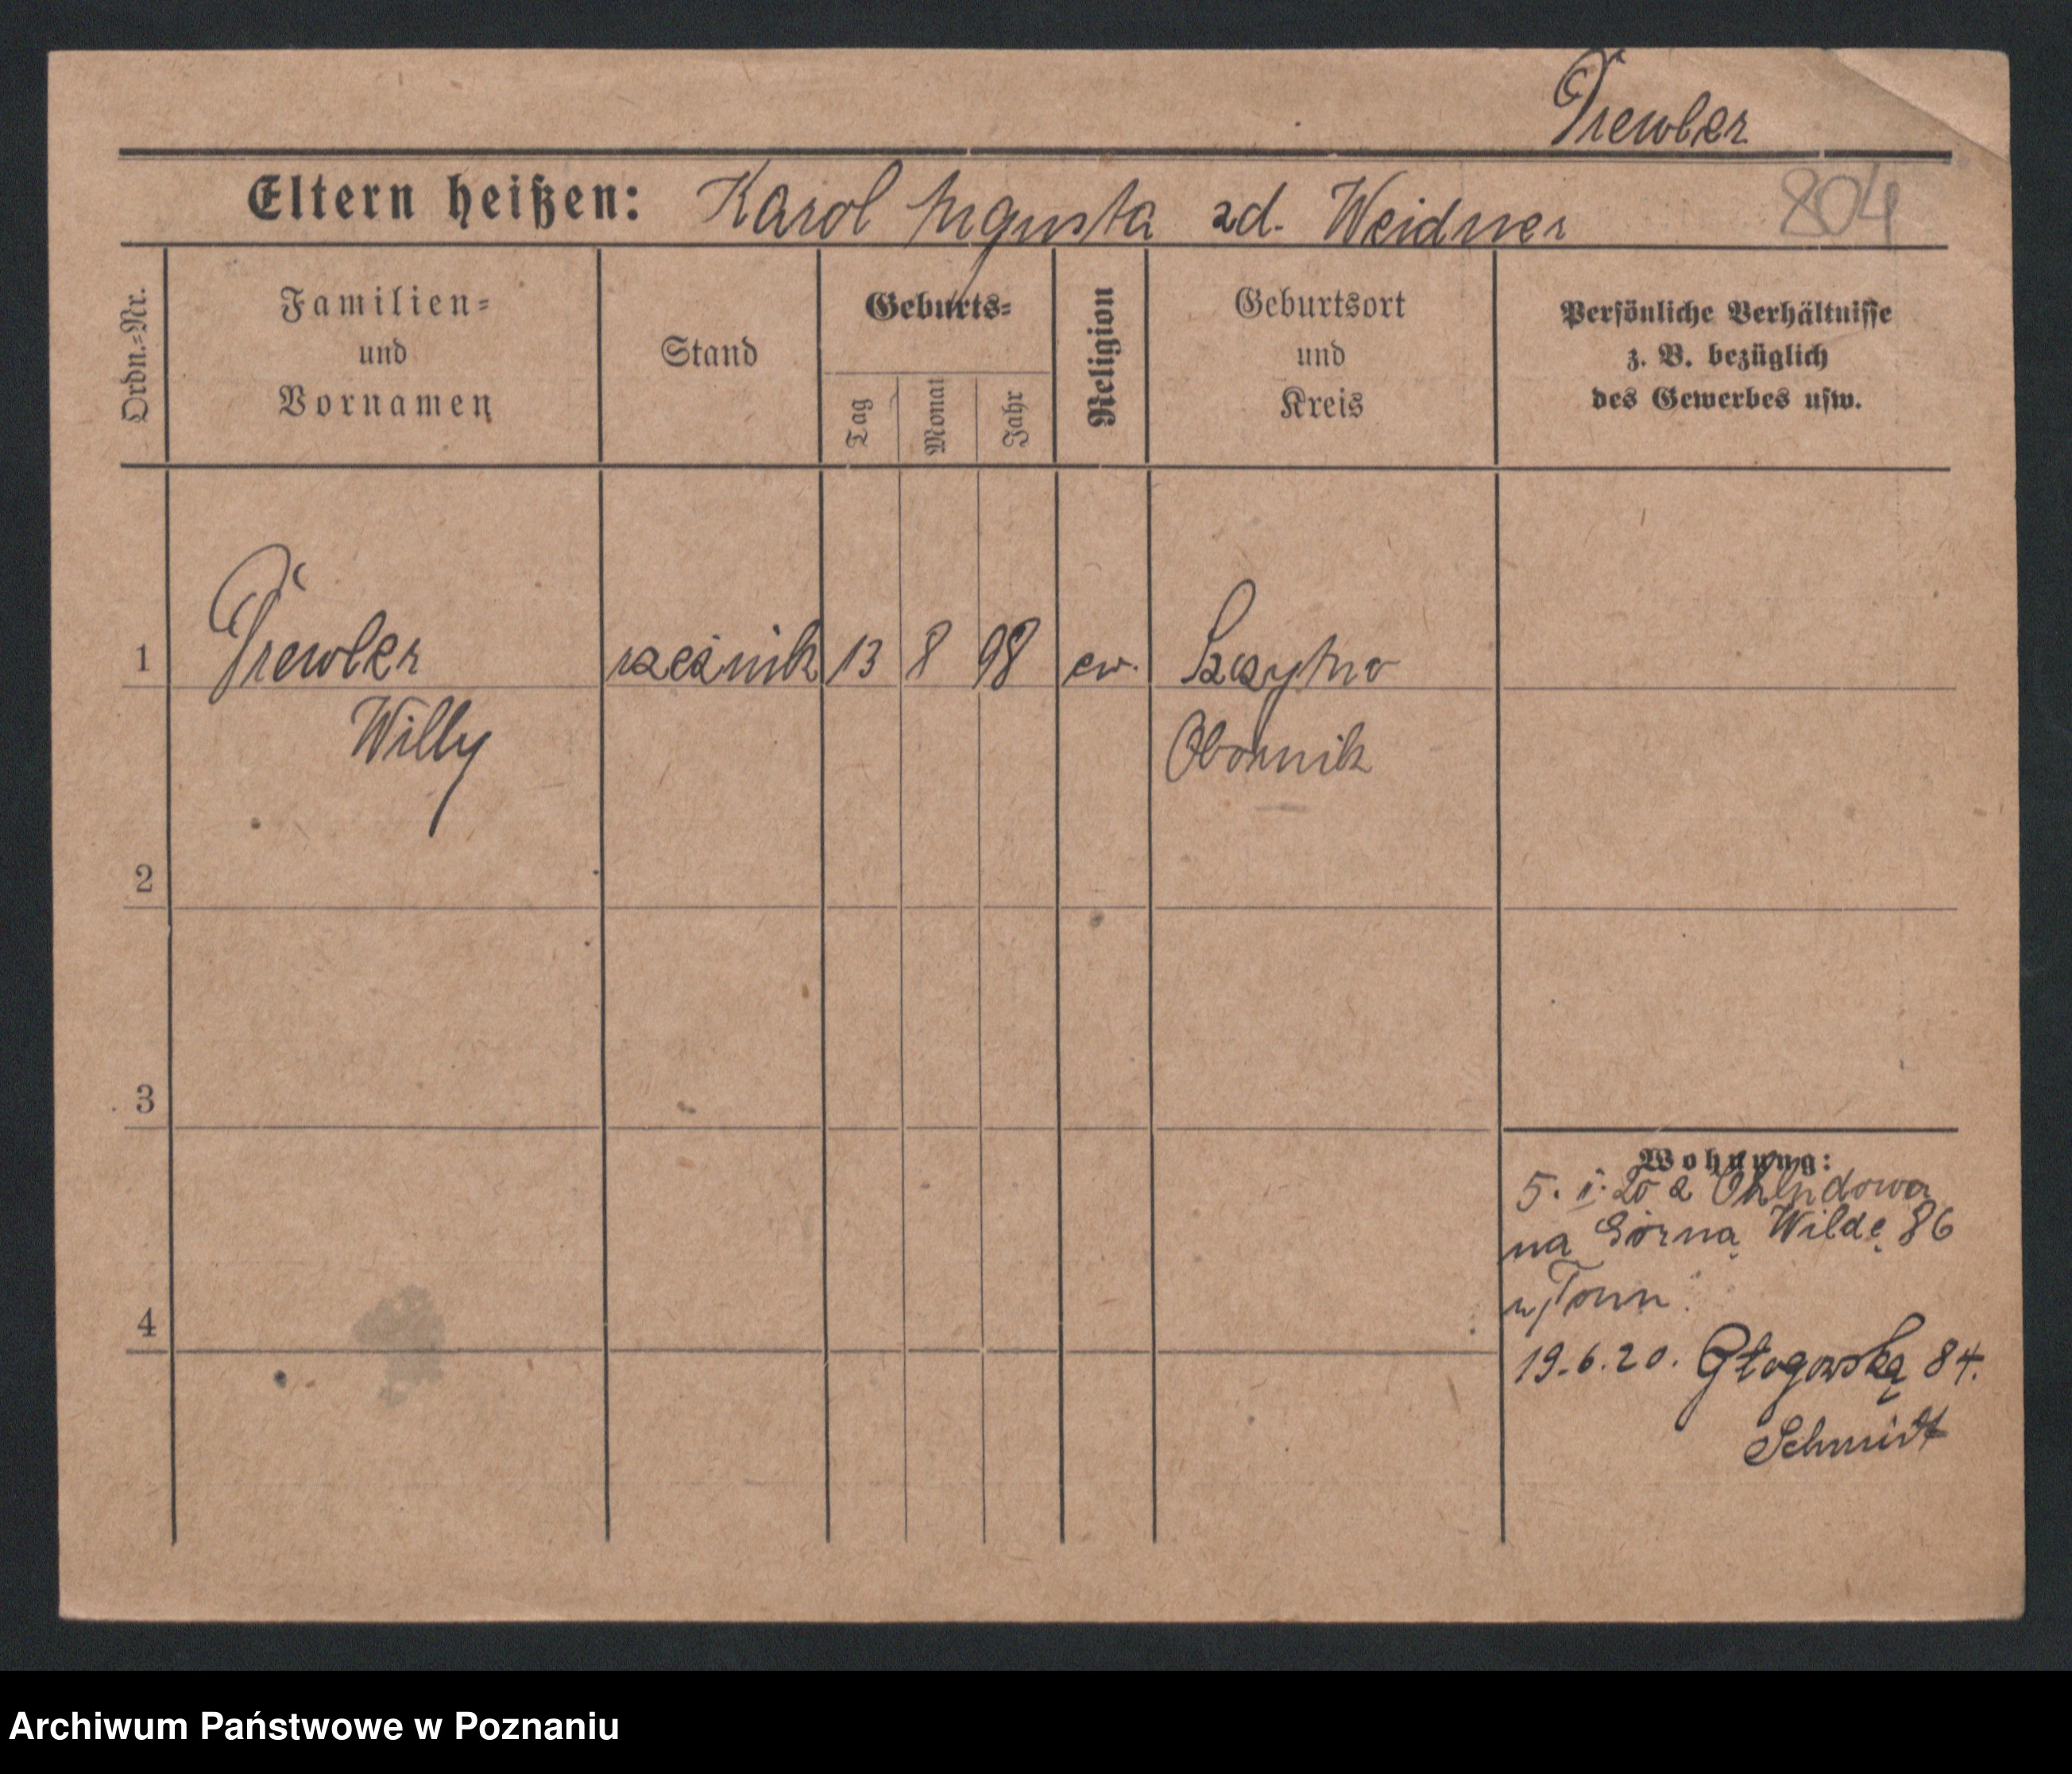 Drewler
Eltern heißen: Karol Augusta zd. Weidner
804
Ordn.=Nr.
Familien=
und
Vornamen
Stand
Geburts=
Tag
Monat
Jahr
Religion
Geburtsort
und
Kreis
Persönliche Verhältnisse
z. B. bezüglich
des Gewerbes usw.
1 rzeźnik 13 8 98 ew.
Willy Obornik
2
3
4
Wohnung:
5. i. 20 z
na Górną Wildę 86
19.6.20. Głogowską 84.
Schmidt
Archiwum Państwowe w Poznaniu